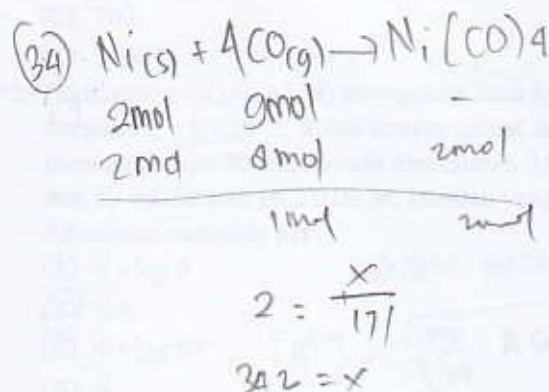 34 Ni(s) + 4CO(g) → Ni(CO)4
2mol 9mol -
2mol 8mol 2mol
1mol 2mol
2 = x/171
342 = x